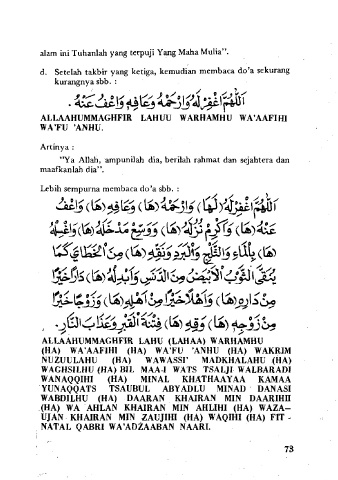 alam ini Tuhanlah yang terpuji Yang Maha Mulia".
d. Setelah takbir yang ketiga, kemudian membaca do'a sekurang
kurangnya sbb. :
اَللّٰهُمَّ اغْفِرْ لَهُ وَارْحَمْهُ وَعَافِهِ وَاعْفُ عَنْهُ .
ALLAAHUMMAGHFIR LAHUU WARHAMHU WA'AAFIHI
WA'FU 'ANHU.
Artinya :
"Ya Allah, ampunilah dia, berilah rahmat dan sejahtera dan
maafkanlah dia".
Lebih sempurna membaca do'a sbb. :
اَللّٰهُمَّ اغْفِرْلَهُ (لَهَا) وَارْحَمْهُ (هَا) وَعَافِهِ (هَا) وَاعْفُ
عَنْهُ (هَا) وَاَكْرِمْ نُزُلَهُ (هَا) وَوَسِّعْ مَدْخَلَهُ (هَا) وَاغْسِلْهُ
(هَا) بِالْمَاءِ وَالثَّلْجِ وَالْبَرَدِ وَنَقِّهِ (هَا) مِنَ الْخَطَايَا كَمَا
يُنَقَّى الثَّوْبُ الْاَبْيَضُ مِنَ الدَّنَسِ وَاَبْدِلْهُ (هَا) دَارًا خَيْرًا
مِنْ دَارِهِ (هَا) وَاَهْلًا خَيْرًا مِنْ اَهْلِهِ (هَا) وَزَوْجًا خَيْرًا
مِنْ زَوْجِهِ (هَا) وَقِهِ (هَا) فِتْنَةَ الْقَبْرِ وَعَذَابَ النَّارِ .
ALLAAHUMMAGHFIR LAHU (LAHAA) WARHAMHU
(HA) WA'AAFIHI (HA) WA'FU 'ANHU (HA) WAKRIM
NUZUULAHU (HA) WAWASSI' MADKHALAHU (HA)
WAGHSILHU (HA) BIL MAA-I WATS TSALJI WALBARADI
WANAQQIHI (HA) MINAL KHATHAAYAA KAMAA
YUNAQQATS TSAUBUL ABYADLU MINAD DANASI
WABDILHU (HA) DAARAN KHAIRAN MIN DAARIHII
(HA) WA AHLAN KHAIRAN MIN AHLIHI (HA) WAZA–
UJAN KHAIRAN MIN ZAUJIHI (HA) WAQIHI (HA) FIT -
NATAL QABRI WA'ADZAABAN NAARI.
73